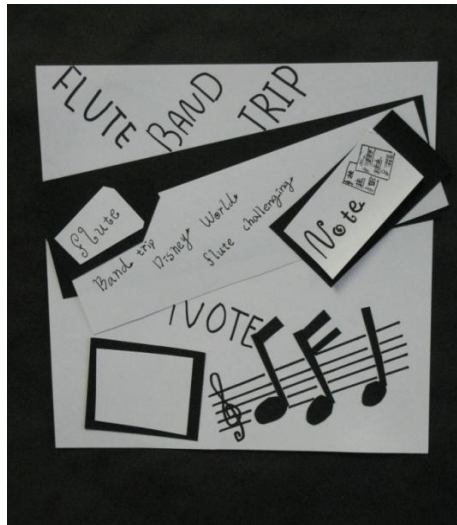 FLUTE BAND TRIP
flute
Band trip
Disney World
flute challenging
Note
NOTE